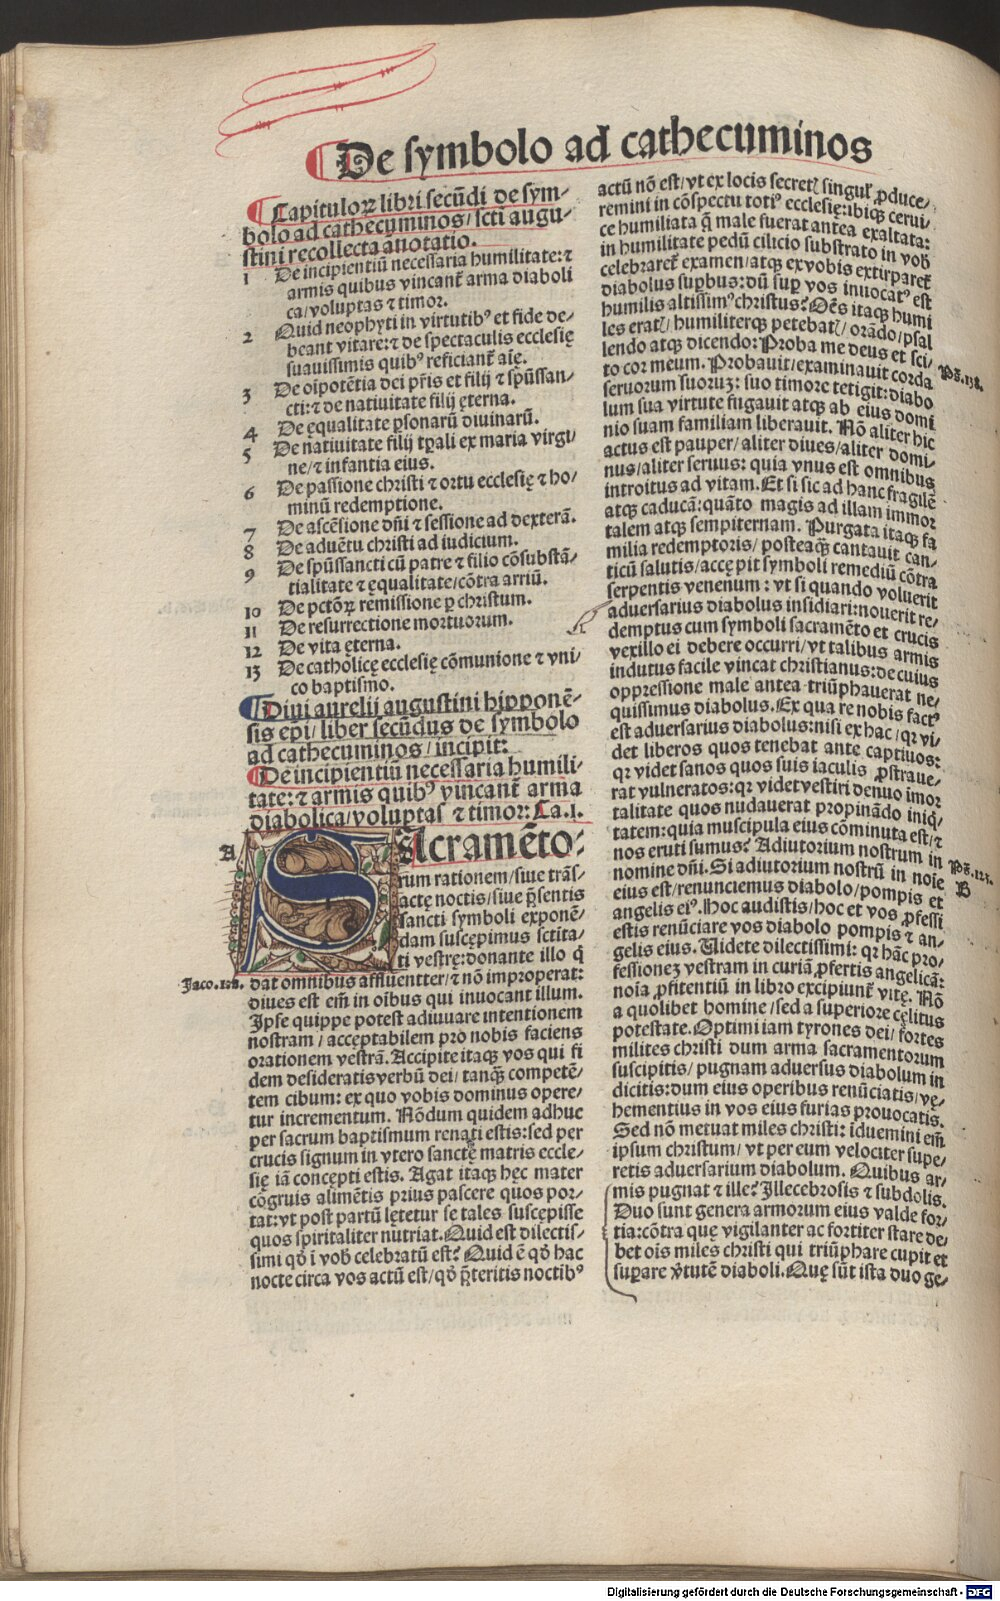 De symbolo ad cathecuminos
Capituloꝝ libri secūdi de sym⸗
bolo ad cathecuminos/ scti augu⸗
stini recollecta anotatio.
1 De incipientiū necessaria humilitate: ⁊
armis quibus vincant̄ arma diaboli
ca/voluptas ⁊ timor.
2 Quid neophyti in virtutibꝰ et fide de⸗
beant vitare: ⁊ de spectaculis ecclesię
suauissimis quibꝰ reficiant̄ aīe.
3 De oīpotētia dei p̄ris et filij ⁊ sp̄ussan⸗
cti: ⁊ de natiuitate filij ęterna.
4 De ęqualitate ꝑsonarū diuinarū.
5 De natiuitate filij tꝑali ex maria virgi⸗
ne/ ⁊ infantia eius.
6 De passione christi ⁊ ortu ecclesię ⁊ ho⸗
minū redemptione.
7 De ascēsione dn̄i ⁊ sessione ad dexterā.
8 De aduētu christi ad iudicium.
9 De sp̄ussancti cū patre ⁊ filio cōsubstā⸗
tialitate ⁊ ęqualitate/cōtra arriū.
10 De pctōꝝ remissione ꝑ christum.
11 De resurrectione mortuorum.
12 De vita ęterna.
13 De catholicę ecclesię cōmunione ⁊ vni⸗
co baptismo.
Diui aurelij augustini hipponē⸗
sis ep̄i/ liber secūdus de symbolo
ad cathecuminos/ incipit:
De incipientiū necessaria humili⸗
tate: ⁊ armis quibꝰ vincant̄ arma
diabolica/voluptas ⁊ timor: Ca.1.
A
SAcramēto⸗
rum rationem/siue trās⸗
actę noctis/siue p̄sentis
sancti symboli exponē⸗
dam suscępimus sctita⸗
ti vestrę: donante illo q̄
Jaco.1.
dat omnibus affluentter/ ⁊ nō improperat:
diues est em̄ in oībus qui inuocant illum.
Ipse quippe potest adiuuare intentionem
nostram/ accęptabilem pro nobis faciens
orationem vestrā. Accipite itaqꝫ vos qui fi
dem desideratis verbū dei/ tanqꝫ competē⸗
tem cibum: ex quo vobis dominus opere⸗
tur incrementum. Nōdum quidem adhuc
per sacrum baptismum renati estis: sed per
crucis signum in vtero sanctę matris eccle⸗
się iā concępti estis. Agat itaqꝫ hęc mater
cōgruis alimētis prius pascere quos por⸗
tat: vt post partū lętetur se tales suscępisse
quos spiritaliter nutriat. Quid est dilectis⸗
simi qd̄ ī vob̄ celebratū est? Quid ē qd̄ hac
nocte circa vos actū est/ qd̄ p̄teritis noctibꝰ
actū nō est/ vt ex locis secret̄ singul̄ ꝓduce⸗
remini in cōspectu totiꝰ ecclesię: ibiqꝫ cerui⸗
ce humiliata q̄ male fuerat antea exaltata:
in humilitate pedū cilicio substrato in vob̄
celebraret̄ examen/ atqꝫ ex vobis extirparet̄
diabolus suꝑbus: dū suꝑ vos inuocatꝰ est
humilis altissimꝰ christus? Oēs itaqꝫ humi
les erat̄/ humiliterqꝫ petebat̄/ orādo/ psal
lendo atqꝫ dicendo: Proba me deus et sci⸗
Ps̄.138.
to cor meum. Probauit/ examinauit corda
seruorum suoruꝫ: suo timore tetigit: diabo
lum sua virtute fugauit atqꝫ ab eius domi
nio suam familiam liberauit. Nō aliter hic
actus est pauper/ aliter diues/ aliter domi⸗
nus/ aliter seruus: quia vnus est omnibus
introitus ad vitam. Et si sic ad hanc fragilē
atqꝫ caducā: quāto magis ad illam immor
talem atqꝫ sempiternam. Purgata itaqꝫ fa
milia redemptoris/ posteaqꝫ̄ cantauit can⸗
ticū salutis/ accępit symboli remediū cōtra
serpentis venenum: vt si quando voluerit
aduersarius diabolus insidiari: nouerit re⸗
demptus cum symboli sacramēto et crucis
vexillo ei debere occurri/ vt talibus armis
indutus facile vincat christianus: de cuius
oppressione male antea triūphauerat ne⸗
quissimus diabolus. Ex qua re nobis factꝰ
est aduersarius diabolus: nisi ex hac/ qꝛ vi⸗
det liberos quos tenebat ante captiuos:
qꝛ videt sanos quos suis iaculis ꝓstraue⸗
rat vulneratos: qꝛ videt vestiri denuo imor
talitate quos nudauerat propinādo iniq̄⸗
tatem: quia muscipula eius cōminuta est/ ⁊
nos eruti sumus? Adiutorium nostrum in
Ps̄.123.
nomine dn̄i. Si adiutorium nostrū in noīe
B
eius est/ renunciemus diabolo/ pompis et
angelis eiꝰ. Hoc audistis/ hoc et vos ꝓfessi
estis renūciare vos diabolo pompis ⁊ an⸗
gelis eius. Videte dilectissimi: qꝛ hāc pro⸗
fessioneꝫ vestram in curiā ꝓfertis angelicā:
noīa ꝓfitentiū in libro excipiunt̄ vitę. Nō
a quolibet homine/ sed a superiore cęlitus
potestate. Optimi iam tyrones dei/ fortes
milites christi dum arma sacramentorum
suscipitis/ pugnam aduersus diabolum in
dicitis: dum eius operibus renūciatis/ vę⸗
hementius in vos eius furias prouocatis.
Sed nō metuat miles christi: īduemini em̄
ipsum christum/ vt per eum velociter supe⸗
retis aduersarium diabolum. Quibus ar⸗
mis pugnat ⁊ ille? Illecebrosis ⁊ subdolis.
Duo sunt genera armorum eius valde for⸗
tia: cōtra quę vigilanter ac fortiter stare de⸗
bet oīs miles christi qui triūphare cupit et
suꝑare v̄tutē diaboli. Quę sūt ista duo ge⸗
Digitalisierung gefördert durch die Deutsche Forschungsgemeinschaft - DFG